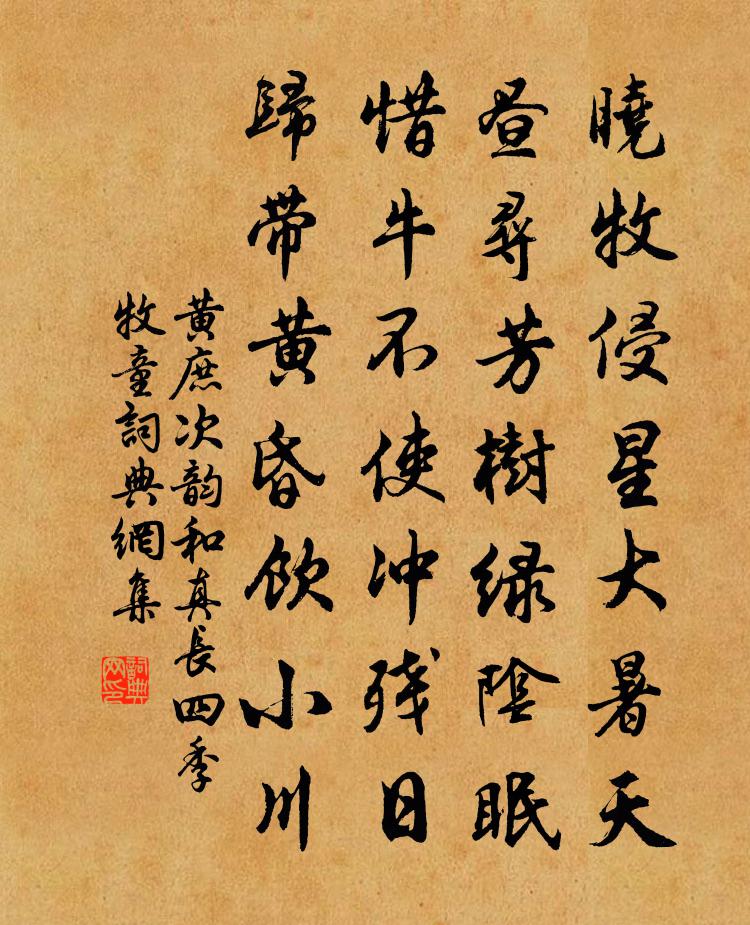 曉牧侵星大暑天
昼尋芳樹緑陰眠
惜牛不使冲残日
歸带黄昏飲小川
黄庶次韵和真長四季
牧童詞典網集
詞典
网印